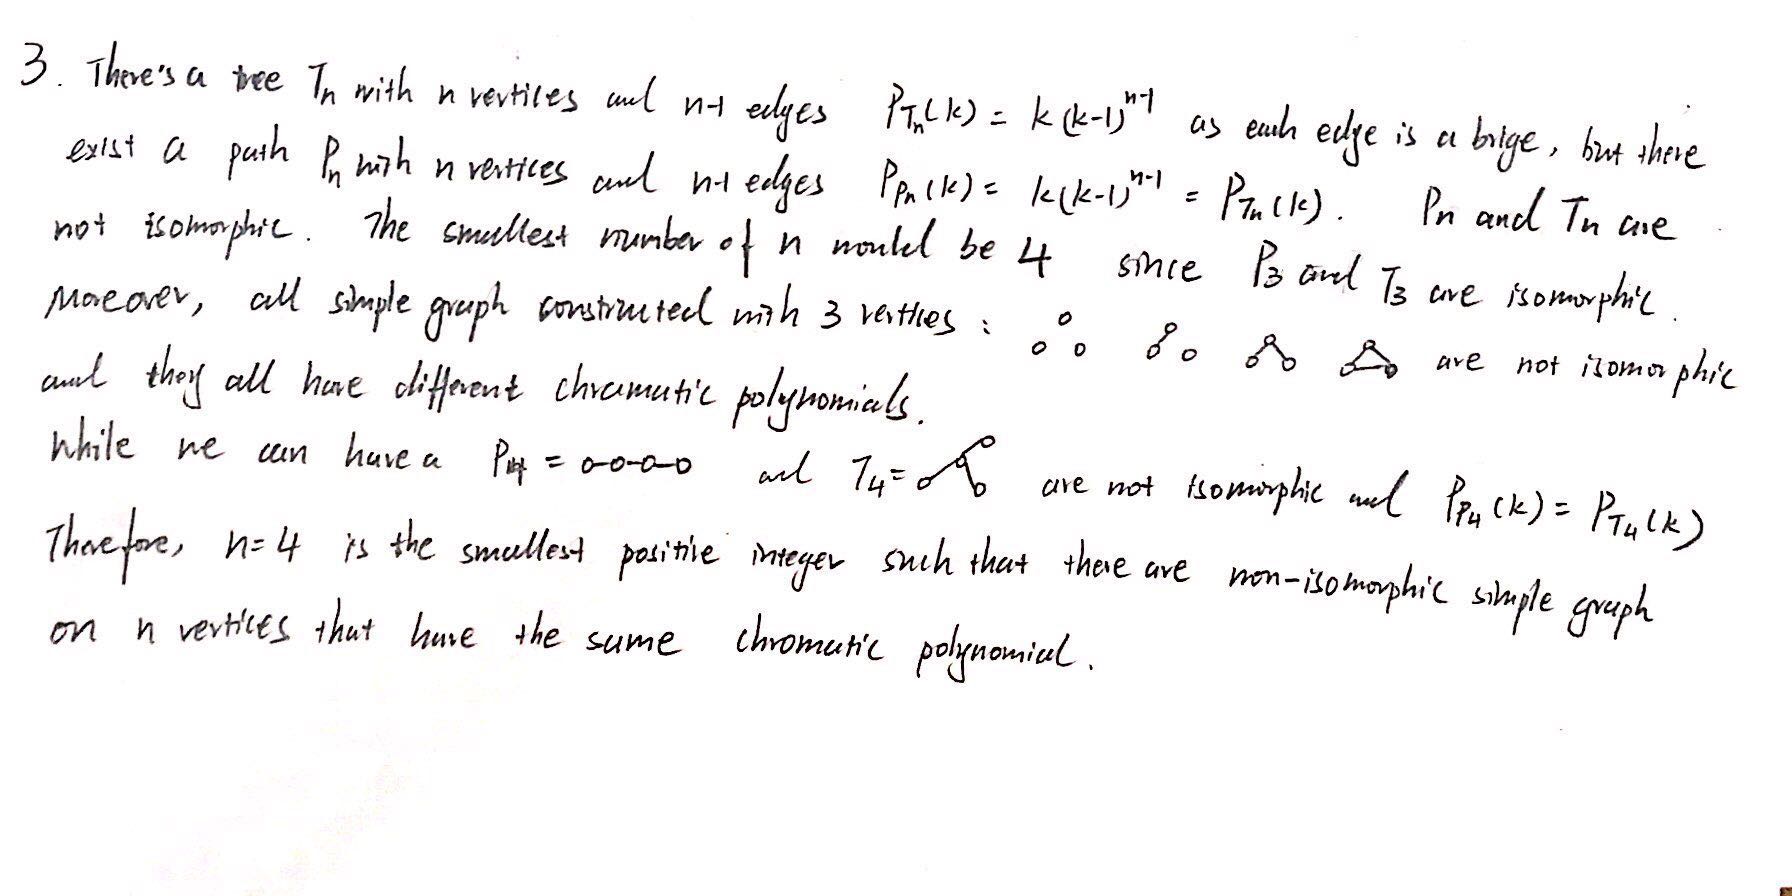 3. There's a tree Tn with n vertices and n-1 edges PTn(k) = k(k-1)^n-1 as each edge is a brige, but there
exist a path Pn with n vertices and n-1 edges PPn(k) = k(k-1)^n-1 = PTn(k). Pn and Tn are
not isomorphic. The smallest number of n would be 4 since P3 and T3 are isomorphic.
Moreover, all simple graph constructed with 3 vertices: are not isomorphic
and they all have different chromatic polynomials.
While we can have a P4 = and T4 = are not isomorphic and PP4(k) = PT4(k)
Therefore, n=4 is the smallest positive integer such that there are non-isomorphic simple graph
on n vertices that have the same chromatic polynomial.